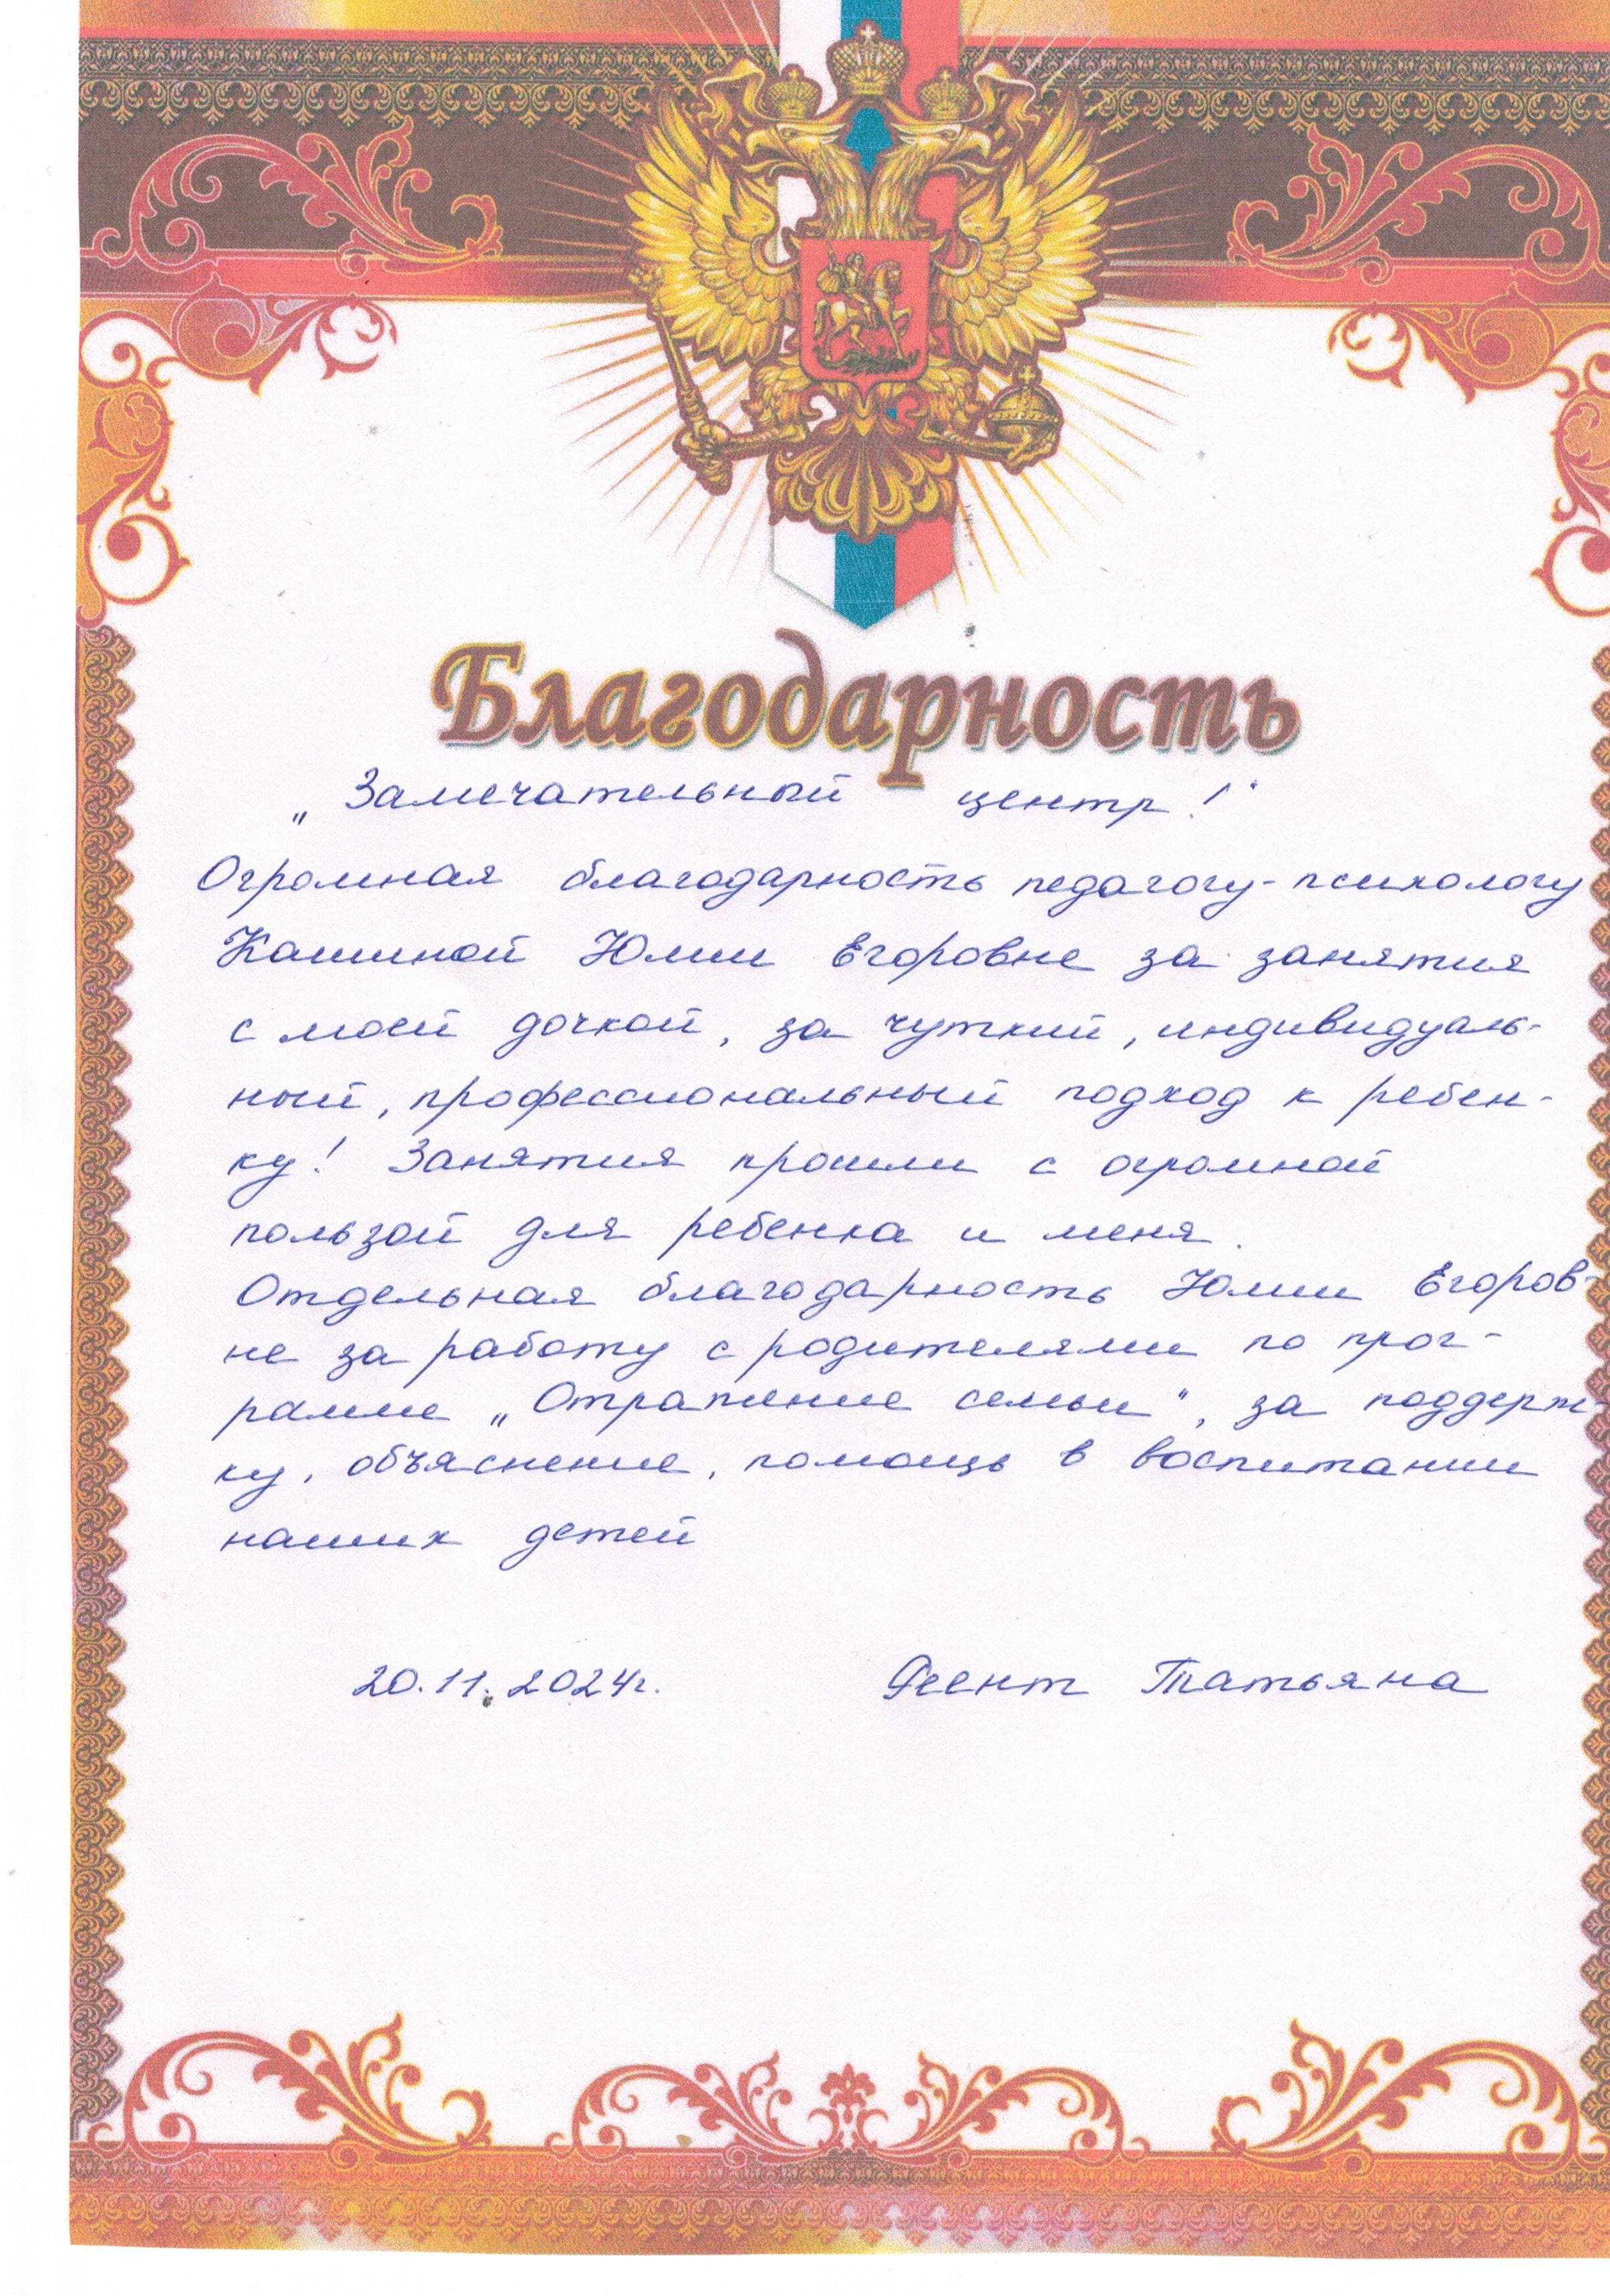 Благодарность
„Замечательный центр!“
Огромная благодарность педагогу-психологу
Кашиной Юлии Егоровне за занятия
с моей дочкой, за чуткий, индивидуаль-
ный, профессиональный подход к ребен-
ку! Занятия прошли с огромной
пользой для ребенка и меня.
Отдельная благодарность Юлии Егоров-
не за работу с родителями по прог-
рамме „Отражение семьи“, за поддерж-
ку, объяснение, помощь в воспитании
наших детей
20.11.2024г.
Татьяна